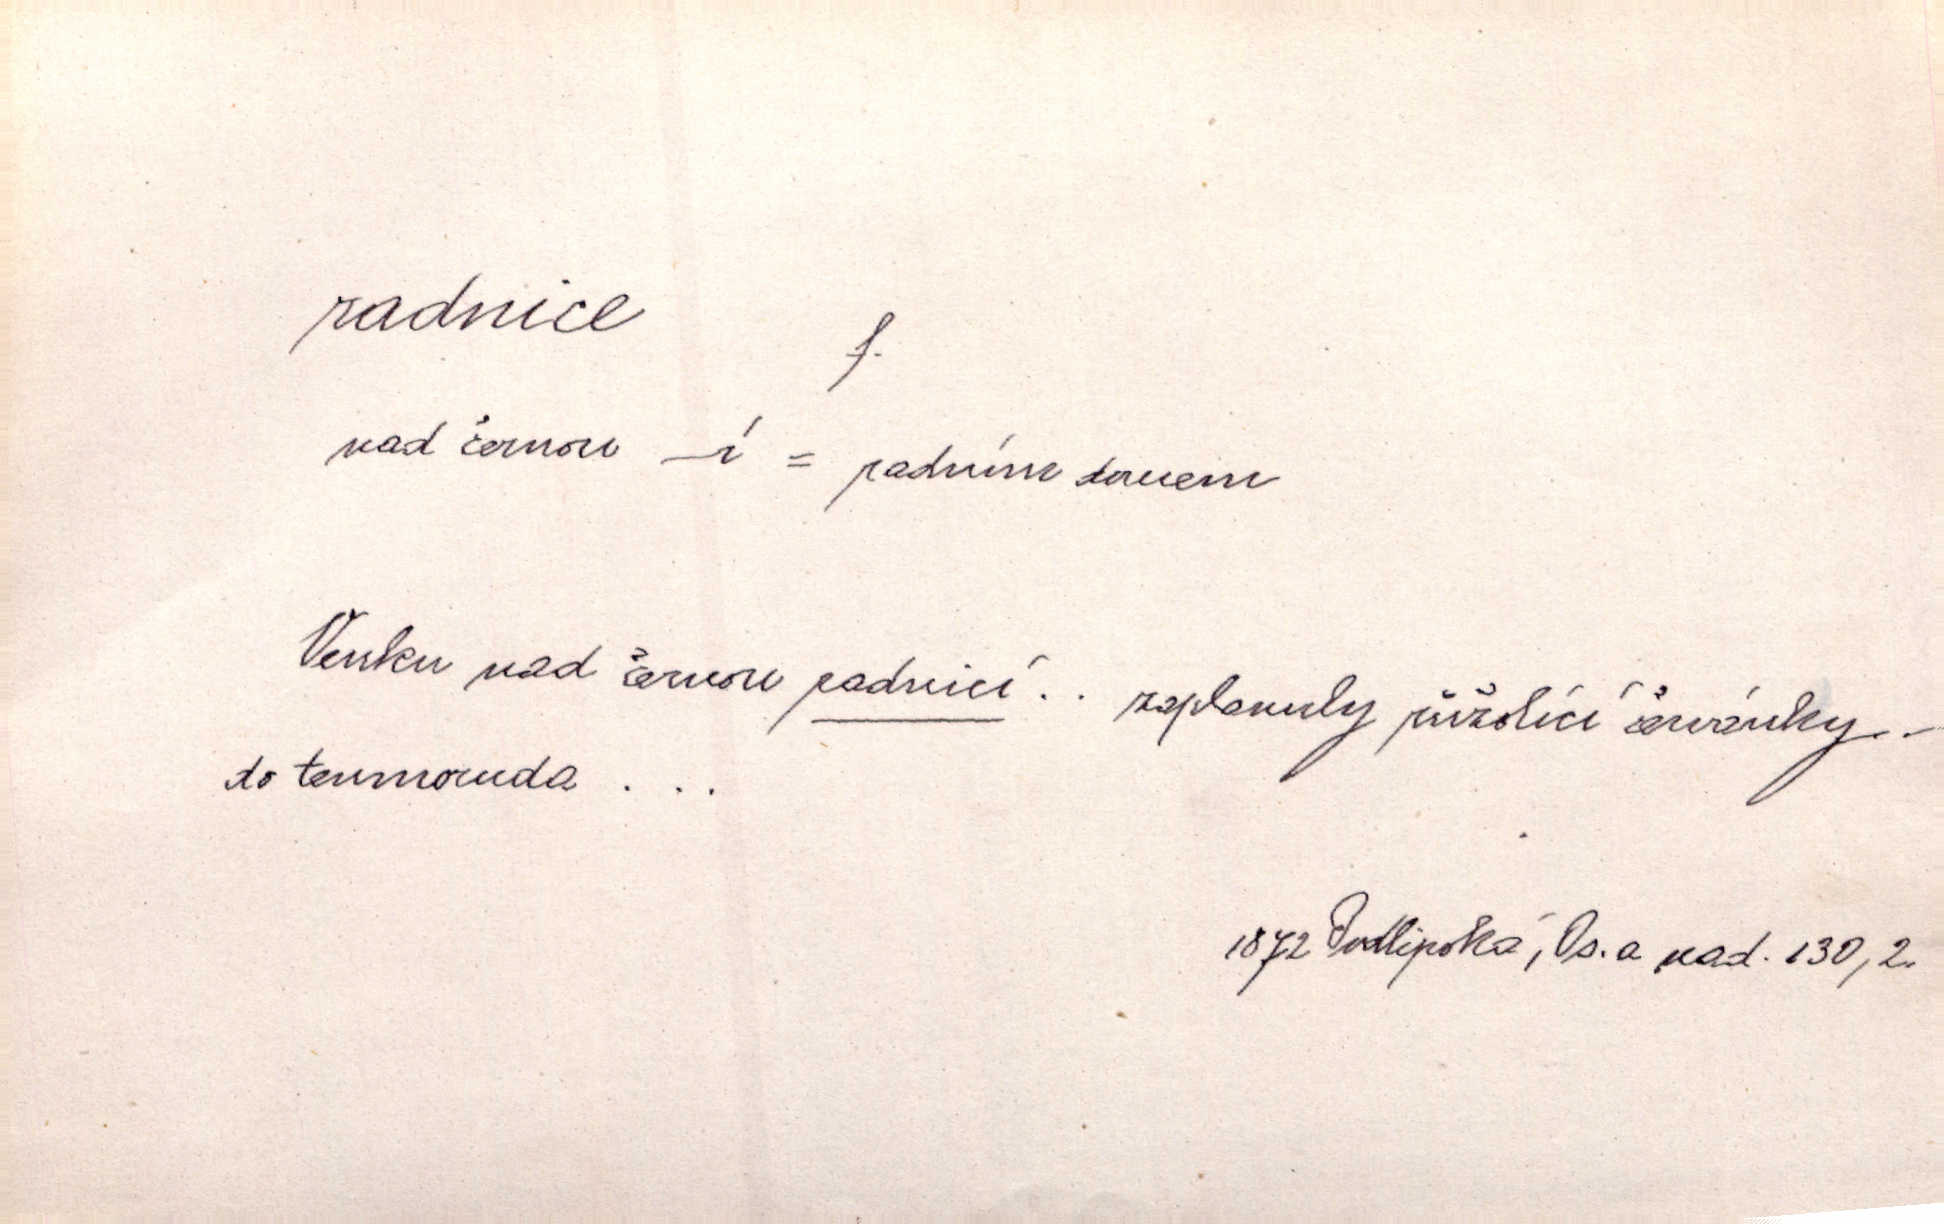 radnice
f.
nad černou —í = radním domem
Venku nad černou radnicí . . zaplanuly růžolící červánky . .
do temnoruda . . .
1872 Podlipská, Os. a nad. 130, 2.